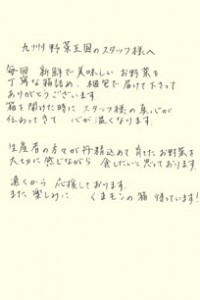 九州野菜王国のスタッフ様へ
毎回 新鮮で美味しい お野菜を
丁寧な箱詰め、梱包で届けて下さって
ありがとうございます
箱を開けた時に スタッフ様の真心が
伝わってきて 心が温くなります。
生産者の方々が丹精込めて育てたお野菜を
大切に感じながら 食したいと思っております。
遠くから 応援しております。
また楽しみに くまモンの箱 待っています!